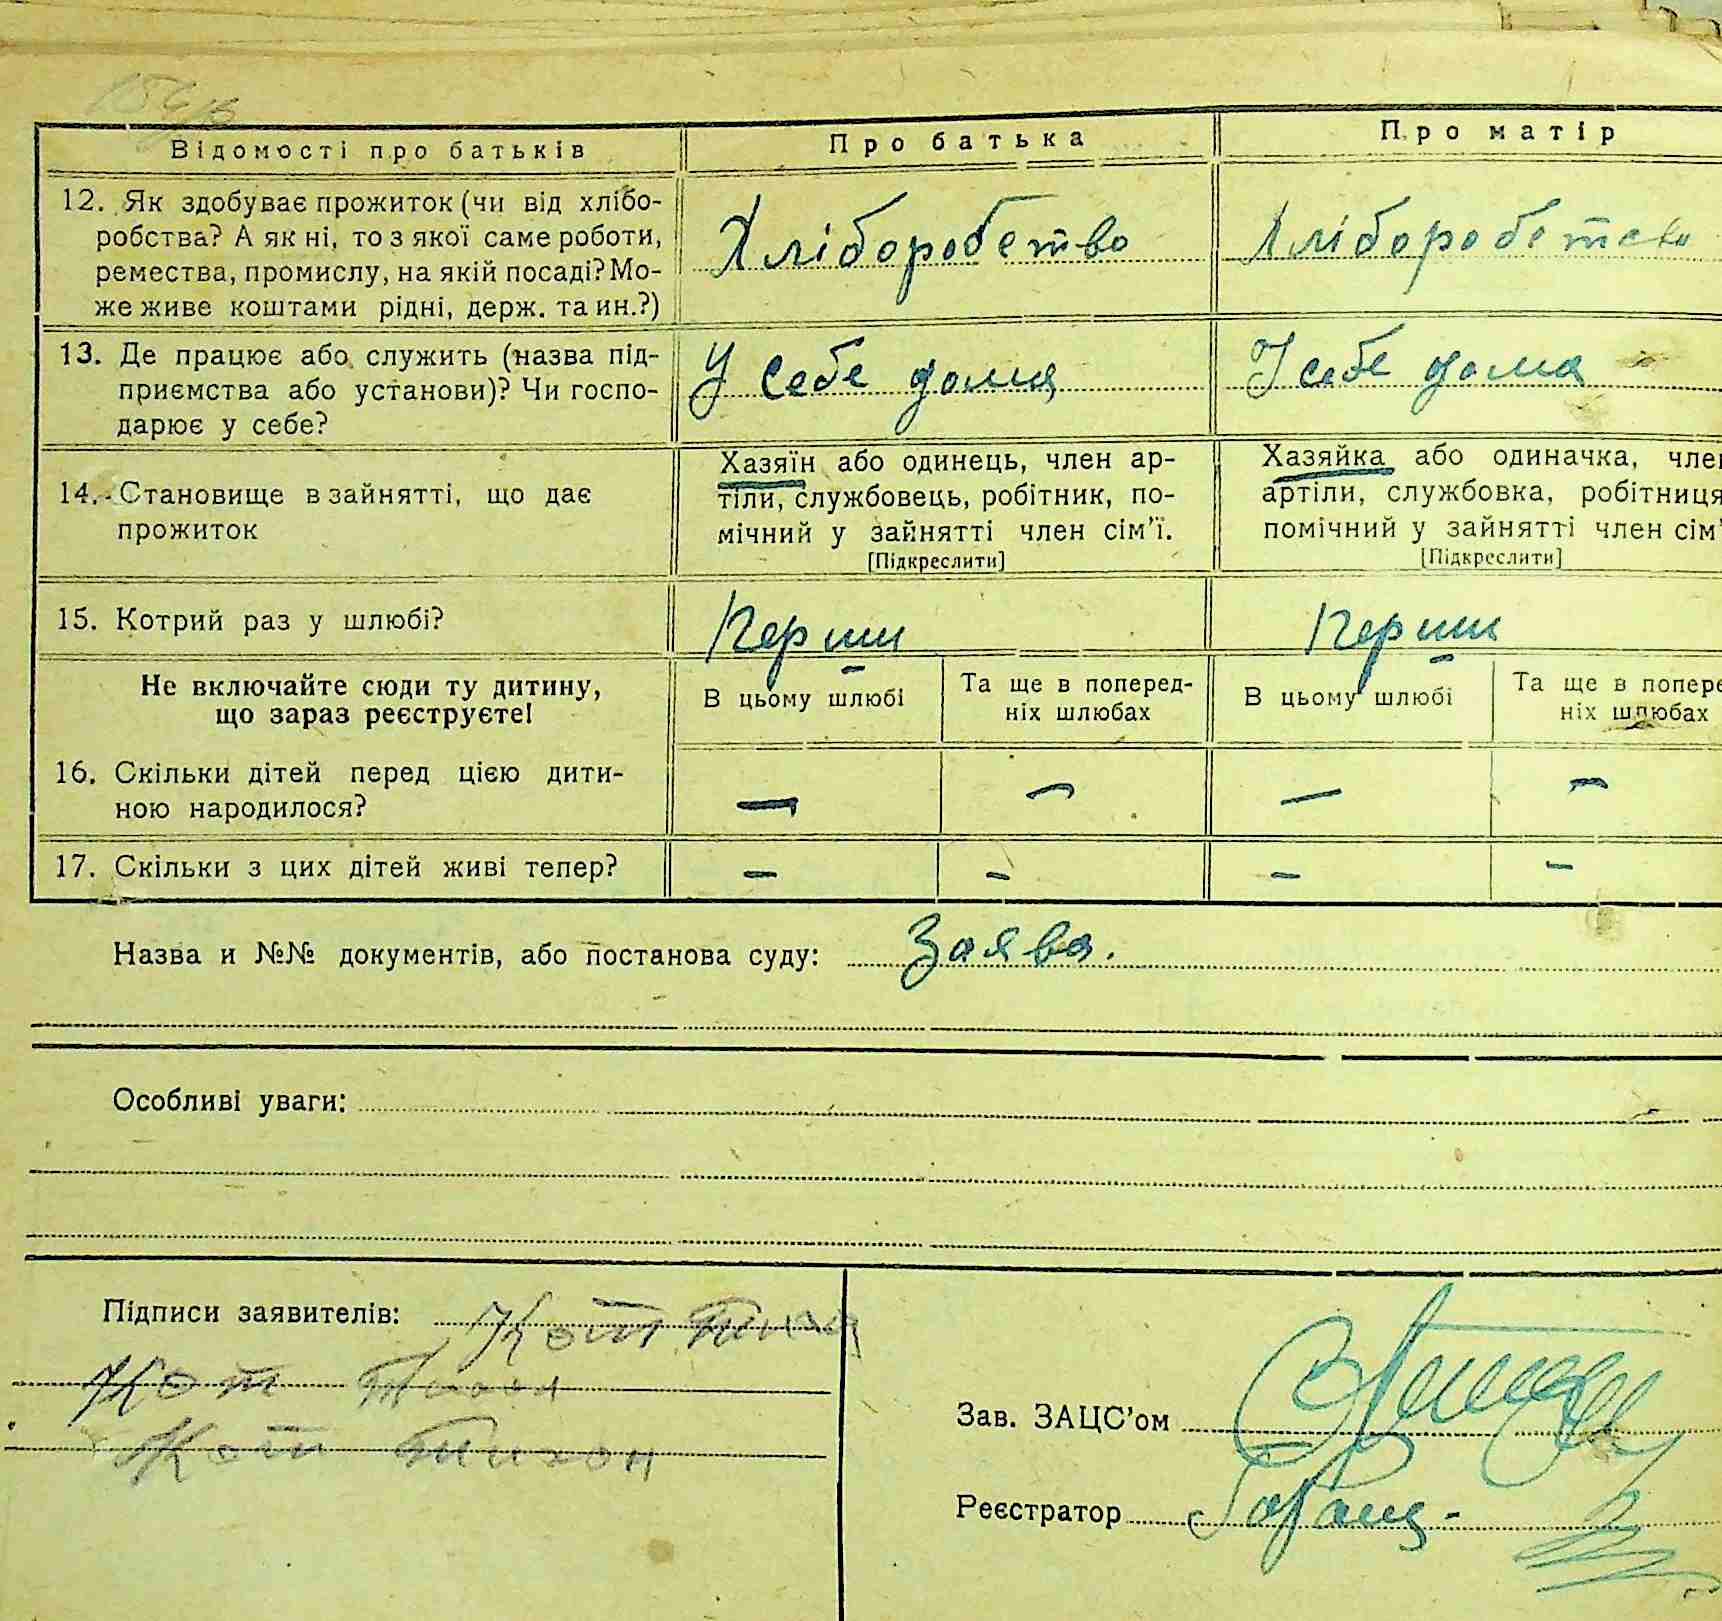 Відомості про батьків
Про батька
Про матір
12. Як здобуває прожиток (чи від хлібо-
робства? А як ні, то з якої саме роботи,
ремества, промислу, на якій посаді? Мо-
же живе коштами рідні, держ. та ин.?)
Хліборобство
Хліборобство
13. Де працює або служить (назва під-
приємства або установи)? Чи госпо-
дарює у себе?
У себе дома
У себе дома
14. Становище в зайнятті, що дає
прожиток
Хазяїн або одинець, член ар-
тіли, службовець, робітник, по-
мічний у зайнятті член сім'ї.
[Підкреслити]
Хазяйка або одиначка, член
артіли, службовка, робітниця
помічний у зайнятті член сім'
[Підкреслити]
15. Котрий раз у шлюбі?
Перши
Перши
Не включайте сюди ту дитину,
що зараз реєструєте!
В цьому шлюбі
Та ще в поперед-
ніх шлюбах
В цьому шлюбі
Та ще в попере
ніх шлюбах
16. Скільки дітей перед цією дити-
ною народилося?
— — — —
17. Скільки з цих дітей живі тепер?
— — — —
Назва и №№ документів, або постанова суду: Заява.
Особливі уваги:
Підписи заявителів: Кот Тихон
Кот Тихон
Кот Тихон
Зав. ЗАЦС'ом
Реєстратор